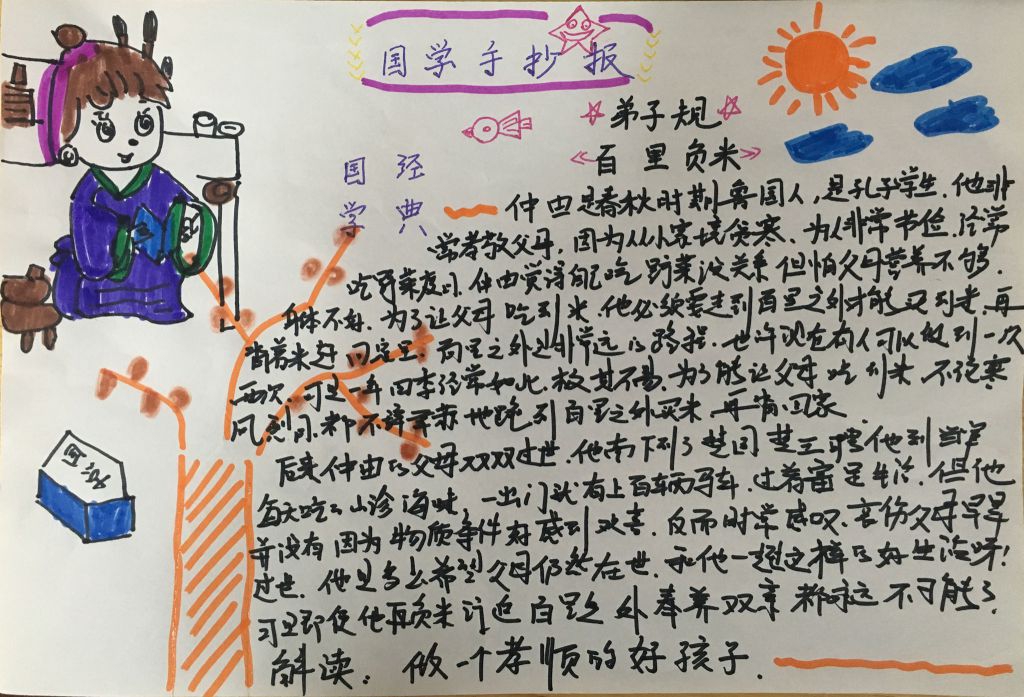 国学手抄报
弟子规
《百里负米》
国学
经典
仲由是春秋时期鲁国人，是孔子学生．他非
常孝敬父母．因为从小家境贫寒、为人非常节俭．经常
吃野菜度日．仲由觉得自己吃野菜没关系但怕父母营养不够．
身体不好．为了让父母吃到米．他必须要走到百里之外才能买到米，再
背着米赶回家里．百里之外是非常远的路程．也许现在有人可以做到一次
两次．可是一年四季经常如此，极其不易．为了能让父母吃到米．不论寒
风烈日．都不辞辛苦地跑到百里之外买米．再背回家
后来仲由的父母双双过世．他南下到了楚国楚王聘他到当官
每天吃的山诊海味，一出门就有上百辆马车．过着富足生活．但他
并没有因为物质条件好感到欢喜．反而时常感叹、哀伤父母早早
过世．他是多么希望父母仍然在世．和他一起过这样的好生活呀！
可是即使他再负米 百里之外奉养双亲都永远不可能了
解读：做一个孝顺的好孩子．